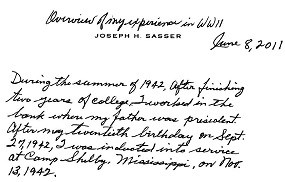 Overview of my experience in WW11
JOSEPH H. SASSER
June 8, 2011
During the summer of 1942, After finishing
two years of college, I worked in the
bank where my father was president.
After my twentieth birthday on Sept.
27, 1942, I was inducted into service
at Camp Shelby, Mississippi, on Nov.
13, 1942.